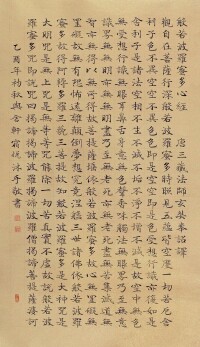 般若波羅蜜多心經 唐三藏法師玄奘奉詔譯
觀自在菩薩行深般若波羅蜜多時照見五蘊皆空度一切苦厄舍
利子色不異空空不異色色即是空空即是色受想行識亦復如是
舍利子是諸法空相不生不滅不垢不淨不增不減是故空中無色
無受想行識無眼耳鼻舌身意無色聲香味觸法無眼界乃至無意
識界無無明亦無無明盡乃至無老死亦無老死盡無苦集滅道無
智亦無得以無所得故菩提薩埵依般若波羅蜜多故心無罣礙無
罣礙故無有恐怖遠離顛倒夢想究竟涅槃三世諸佛依般若波羅
蜜多故得阿耨多羅三藐三菩提故知般若波羅蜜多是大神咒是
大明咒是無上咒是無等等咒能除一切苦真實不虛故說般若波
羅蜜多咒即說咒曰揭諦揭諦波羅揭諦波羅僧揭諦菩提薩婆訶
乙酉年初秋 沐手敬書